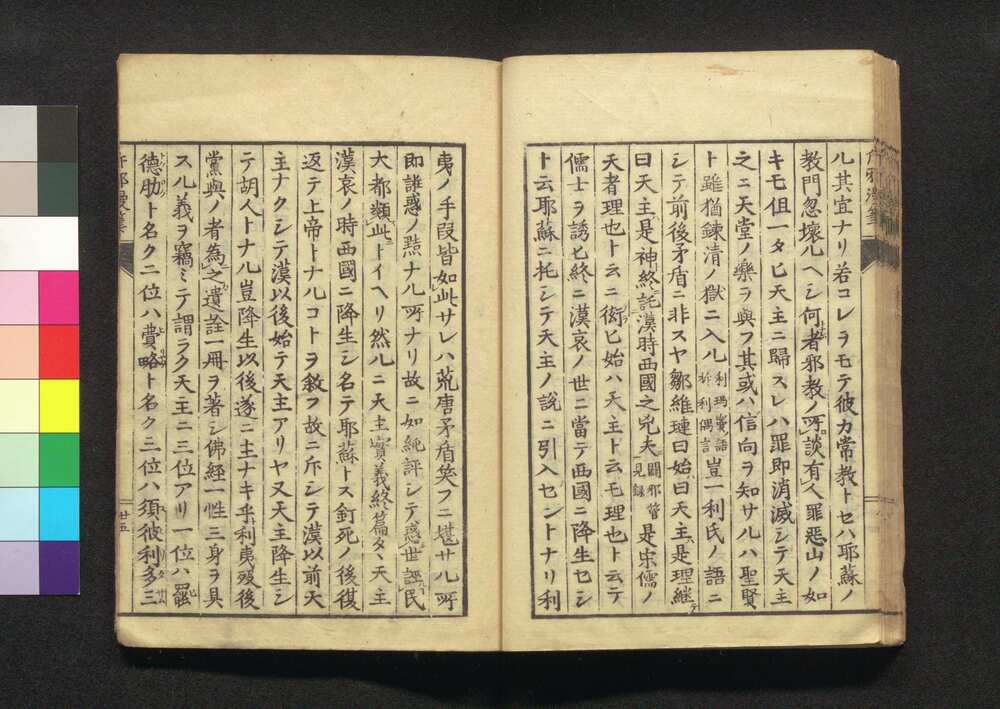 ル其宜ナリ若コレラモテ彼カ常教トセハ耶蘇ノ
教門忽壞ルヘシ何者邪教ノ所談有人罪惡山ノ如
キモ但一タヒ天主ニ歸スレハ罪即消滅シテ天主
之ニ天堂ノ樂ヲ與フ其或ハ信向ヲ知サルハ聖賢
ト雖猶鍊清ノ獄ニ入ル利瑪竇語於利偶言豈一利氏ノ語ニ
シテ前後矛盾ニ非スヤ鄒維璉曰始曰天主是理継テ
曰天主是神終託漢時西國之兇夫闢邪管見録是宋儒ノ
天者理也ト云ニ衒ヒ始ハ天主ト云モ理也ト云テ
儒士ヲ誘ヒ終ニ漢哀ノ世ニ當テ西國ニ降生セシ
ト云耶蘇ニ托シテ天主ノ説ニ引入セントナリ利
夷ノ手段皆如此サレハ荒唐矛盾笑フニ堪サル所
即誑惑ノ㸃ナル所ナリ故ニ如純評シテ惑世誣民
大都類此トイヘリ然ルニ天主實義終篇タヽ天主
漢哀ノ時西國ニ降生シ名テ耶蘇トス釘死ノ後復
返テ上帝トナルコトヲ敘フ故ニ斥シテ漢以前天
主ナクシテ漢以後始テ天主アリヤ又天主降生シ
テ胡人トナル豈降生以後遂ニ主ナキ乎利夷歿後
黨與ノ者為之遺詮一冊ヲ著シ佛經一性三身ヲ具
スル義ヲ竊ミテ謂ラク天主ニ三位アリ一位ハ罷
德肋ト名ク二位ハ費略ト名ク三位ハ須彼利多三
廿五